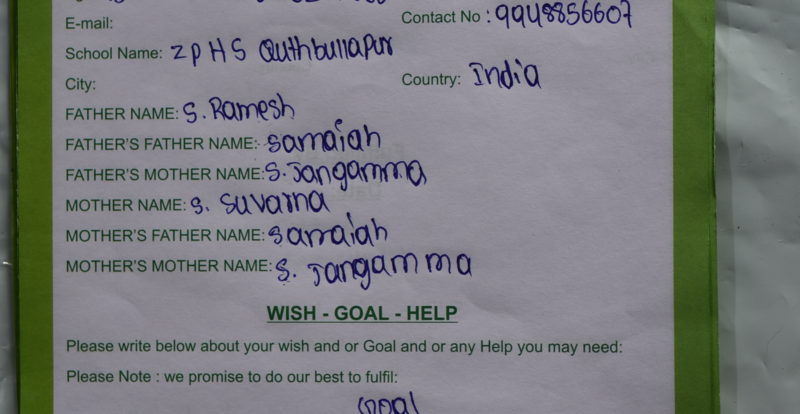 E-mail:
Contact No : 9948856607
School Name: ZPHS Quthbullapur
City:
Country: India
FATHER NAME: S. Ramesh
FATHER'S FATHER NAME:- Samaiah
FATHER'S MOTHER NAME: S. Jangamma
MOTHER NAME: S. Suvarna
MOTHER'S FATHER NAME: Samaiah
MOTHER'S MOTHER NAME: S. Jangamma
WISH - GOAL - HELP
Please write below about your wish and or Goal and or any Help you may need:
Please Note : we promise to do our best to fulfil:
Goal